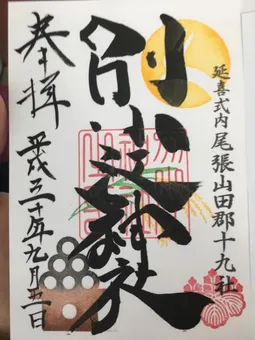 延喜式内 尾張山田郡十九社
別小江神社
奉拝
平成三十年九月五日